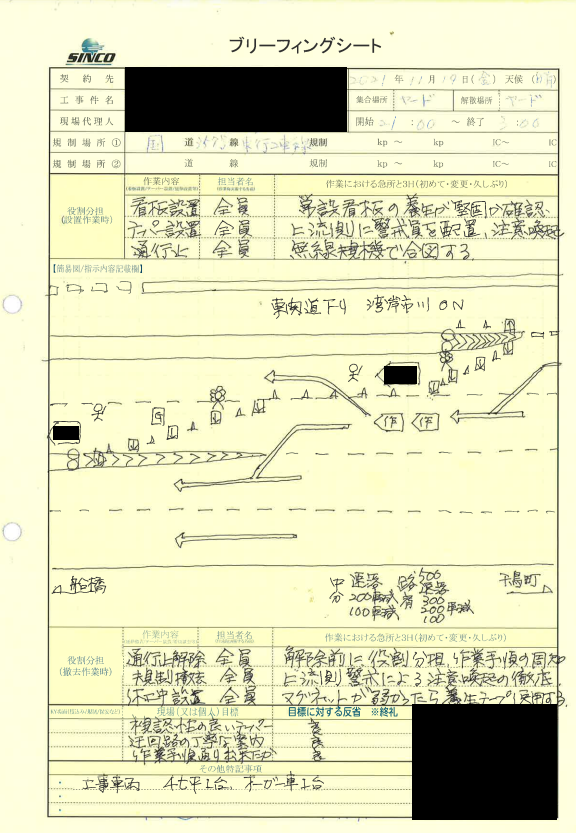 SINCO
ブリーフィングシート
契約先 2021年11月19日(金) 天候(晴)
工事件名 集合場所 ヤード 解散場所 ヤード
現場代理人 開始 21:00 ～ 終了 3:00
規制場所① 国 道 線 規制 kp ～ kp IC～ IC
規制場所② 道 線 規制 kp ～ kp IC～ IC
役割分担(設置作業時) 作業内容 担当者名 作業における急所と3H(初めて・変更・久しぶり)
看板設置 全員 常設看板の養生が堅固か確認
テーパー設置 全員 上流側に警戒員を配置、注意喚起
通行止 全員 無線規機で合図する
【簡易図/指示内容記載欄】
東関道下り 湾岸市川 ON
作 作
船橋
千鳥町
中分 速落 200車減 100車減
路肩 500 速落 300 200車減 100
役割分担(撤去作業時) 作業内容 担当者名 作業における急所と3H(初めて・変更・久しぶり)
通行止解除 全員 解除前に役割分担、作業手順の周知
規制撤去 全員 上流側警戒による注意喚起の徹底
休工中設置 全員 マグネットが弱かったら養生テープ使用する
現場(又は個人)目標 目標に対する反省 ※終礼
視認性の良いテーパー 良
迂回路の丁寧な案内 良
作業手順通り出来たか 良
その他特記事項
・ 工事車両 4t平1台、オーガー車1台